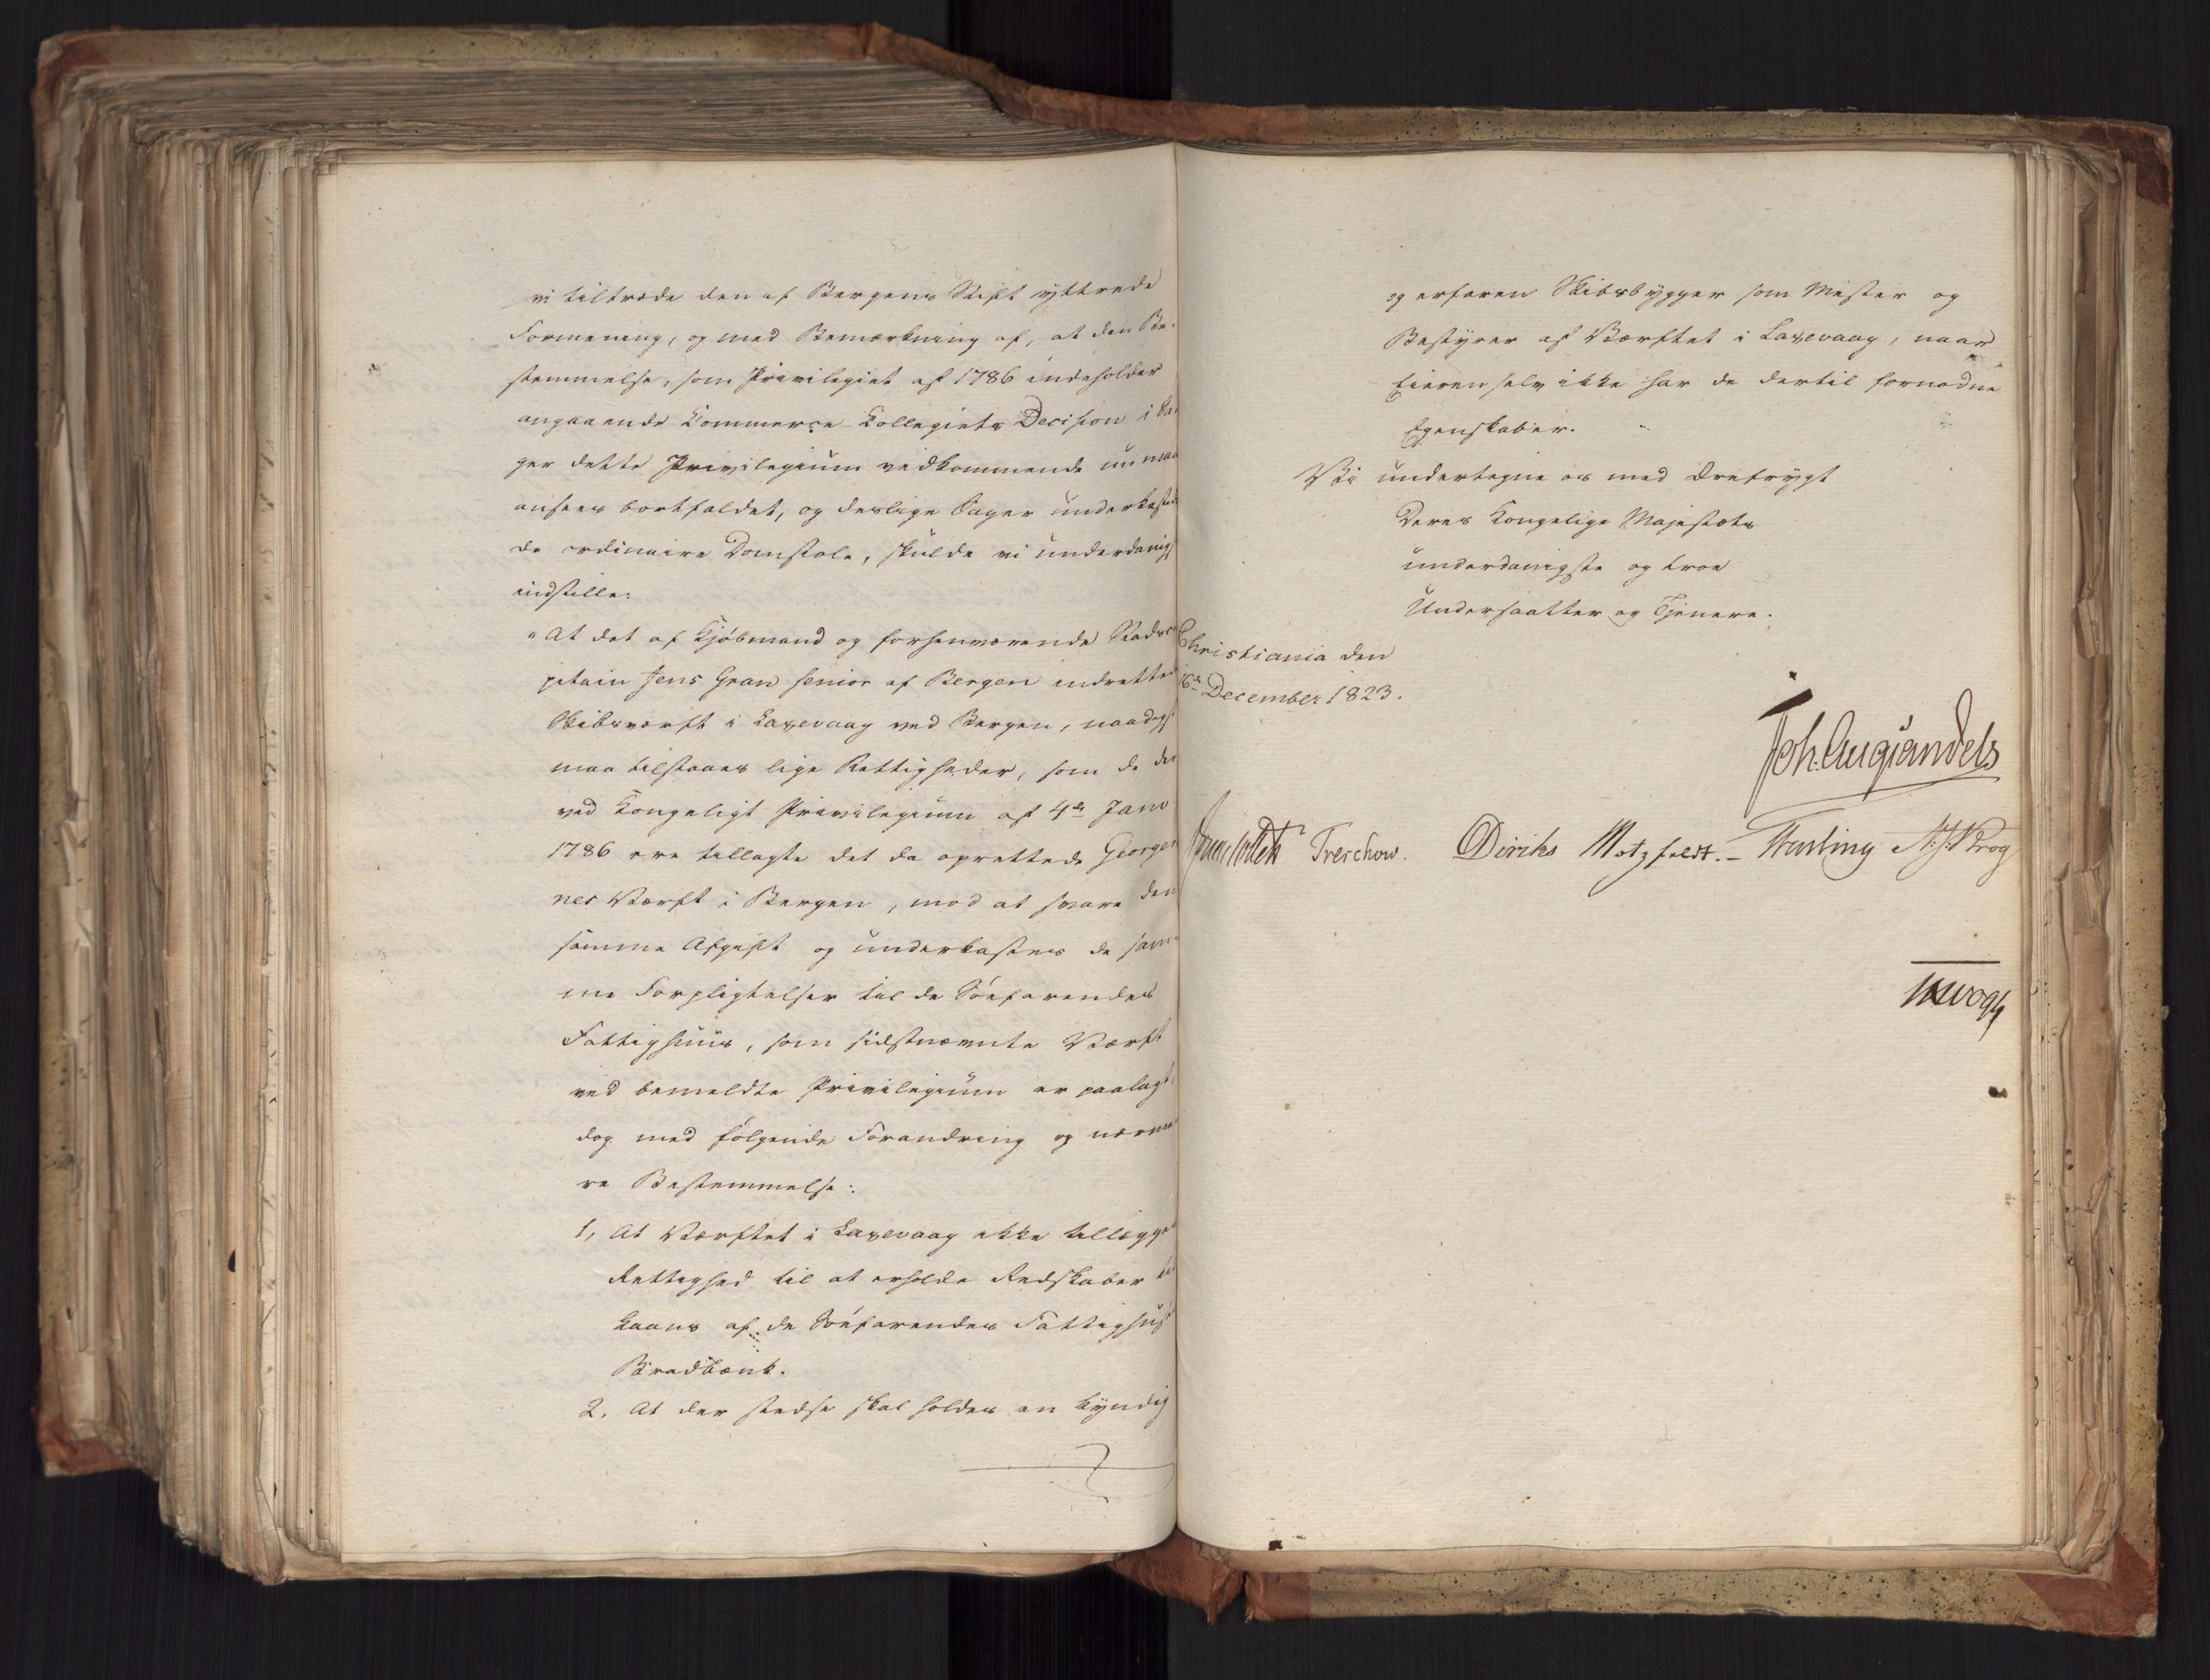 vi tiltræde den af Bergens Stift yttrede
Formening, og med Bemærkning af, at den Be-
stemmelse, som Privilegiet af 1786 indeholder
angaaende Kommerce-Kollegiets Decision i Sa-
ger dette Privilegium vedkommende nu maa
ansees bortfaldet, og deslige Sager underkastede
de ordinaire Domstole, skulde vi underdanigst
indstille:
"At det af Kjøbmand og forhenværende Stadsca-
pitain Jens Gran senior af Bergen indrettede
Skibsværft i Laxevaag ved Bergen, naadigst
maa tilstaaes lige Rettigheder, som de der
ved Kongeligt Privilegium af 4de Janv
1786 ere tillagte det da oprettede Georger-
nes Værft i Bergen, mod at svare den
samme Afgift og underkastes de sam-
me Forpligtelser til de Søefarendes
Fattighuus, som sidstnævnte Værft
ved bemeldte Privilegium er paalagt,
dog med følgende Forandring og nærme-
re Bestemmelse:
1, At Værftet i Laxevaag ikke tillægges
Rettighed til at erholde Redskaber til
Laans af de Søefarendes Fattighus'
Bradbænk.
2, At der stedse skal holdes en kyndig
og erfaren Skibsbygger som Mester og
Bestyrer af Værftet i Laxevaag, naar
Eieren selv ikke har de dertil fornødne
Egenskaber.
Vi undertegne os med Ærefrygt
Deres Kongelige Majestæts
underdanigste og troe
Undersaatter og Tjenere.
Christiania den
16de December 1823.
Joh. Aug. Sandels
Sommerfeldt Treschow. Diriks Motzfeldt. – Fasting N. J. Krog
Vogt